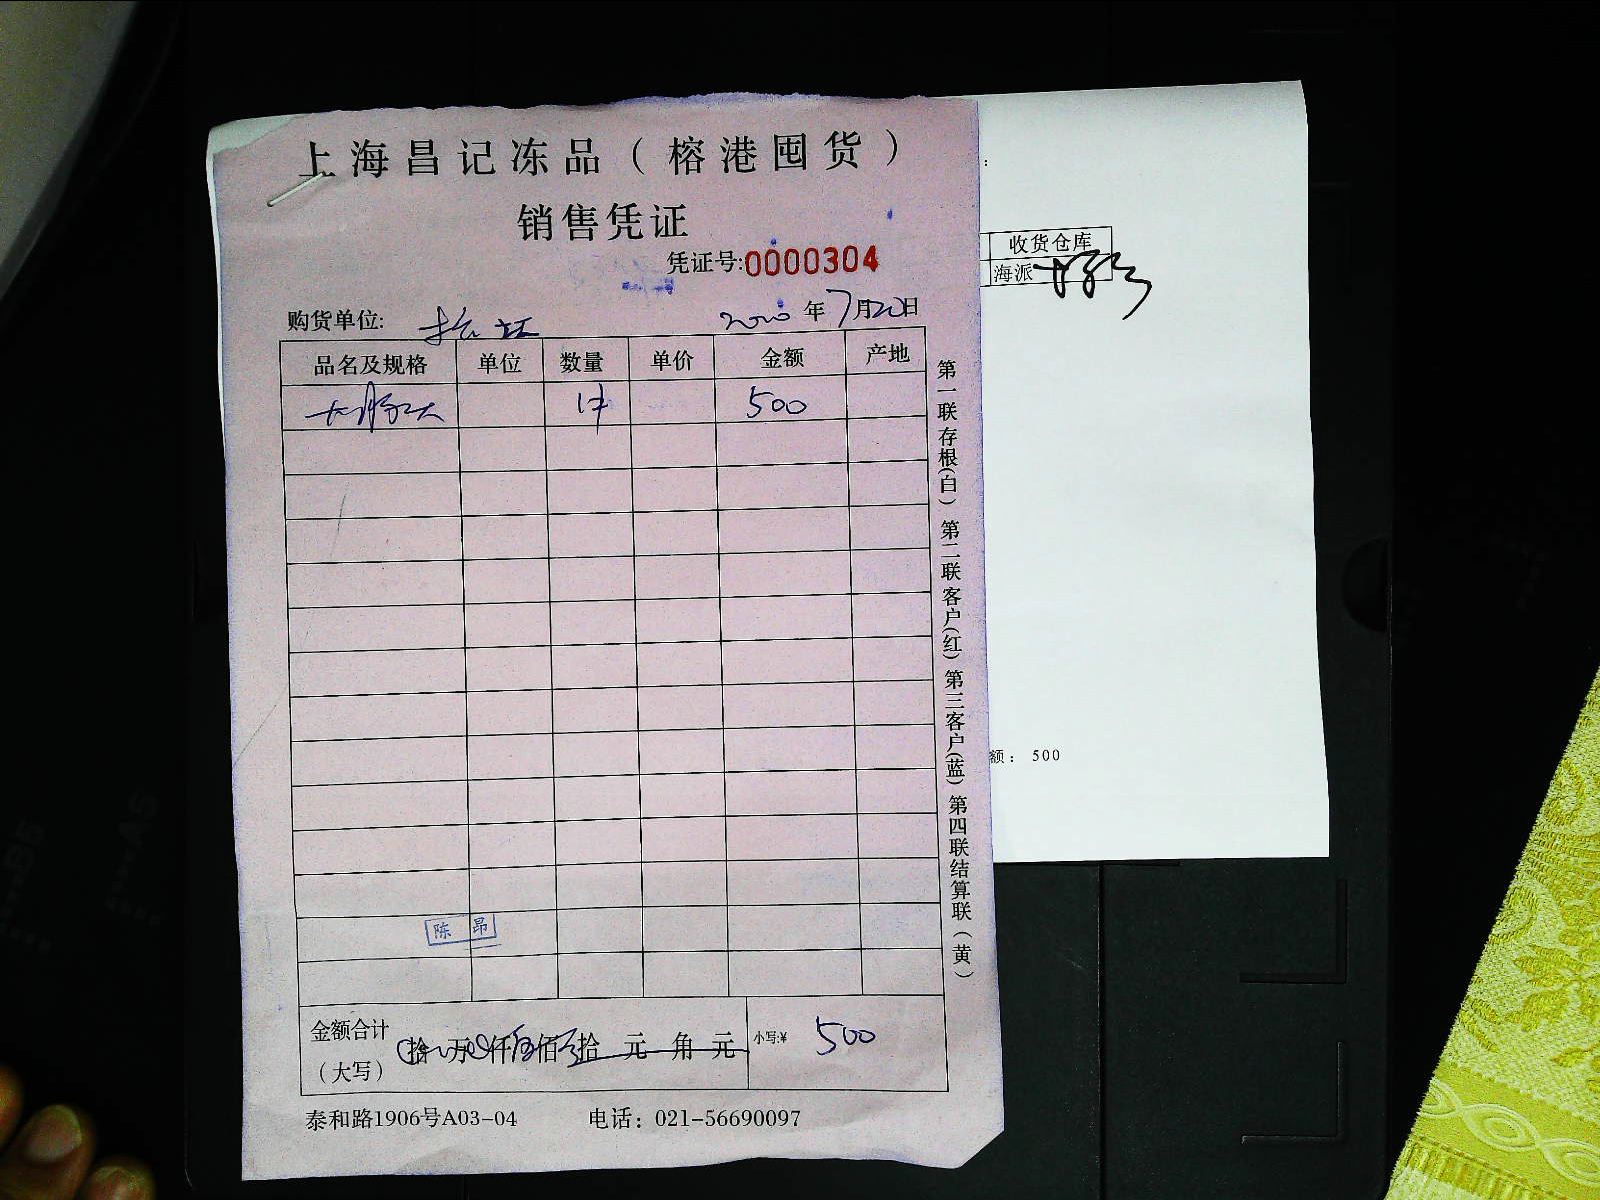 上海昌记冻品（榕港囤货）
销售凭证
凭证号:0000304
购货单位:
2020年7月20日
品名及规格 单位 数量 单价 金额 产地
1件 500
陈昂
金额合计（大写） 拾 万 仟 伍佰 拾 元 角 元 小写:¥ 500
泰和路1906号A03-04 电话：021-56690097
第一联存根(白) 第二联客户(红) 第三客户(蓝) 第四联结算联(黄)
：
收货仓库
海派
额：500